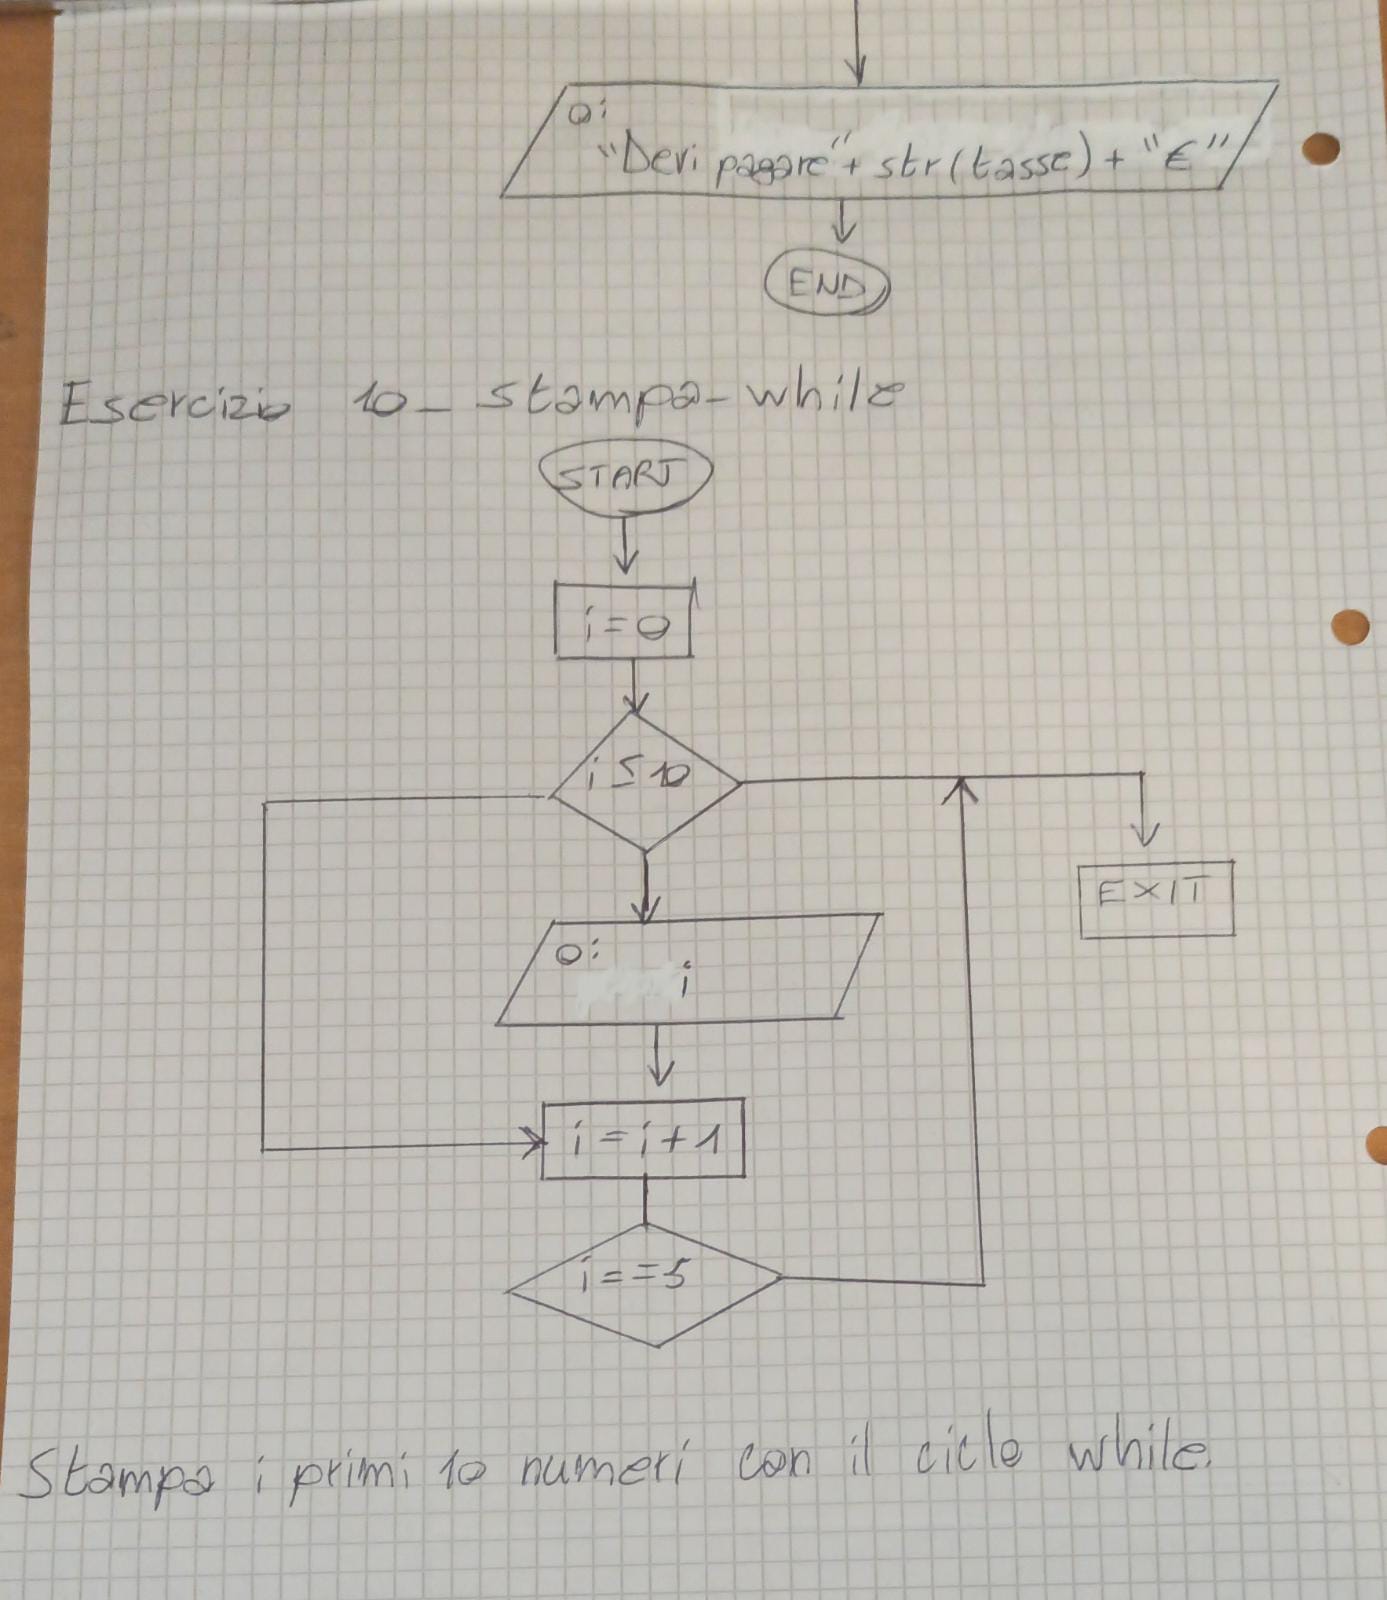 O:
"Devi pagare" + str(tasse) + "€"
END
Esercizio 10_ stampa_while
START
i=0
i ≤ 10
EXIT
O:
i
i = i + 1
i == 5
Stampa i primi 10 numeri con il ciclo while.